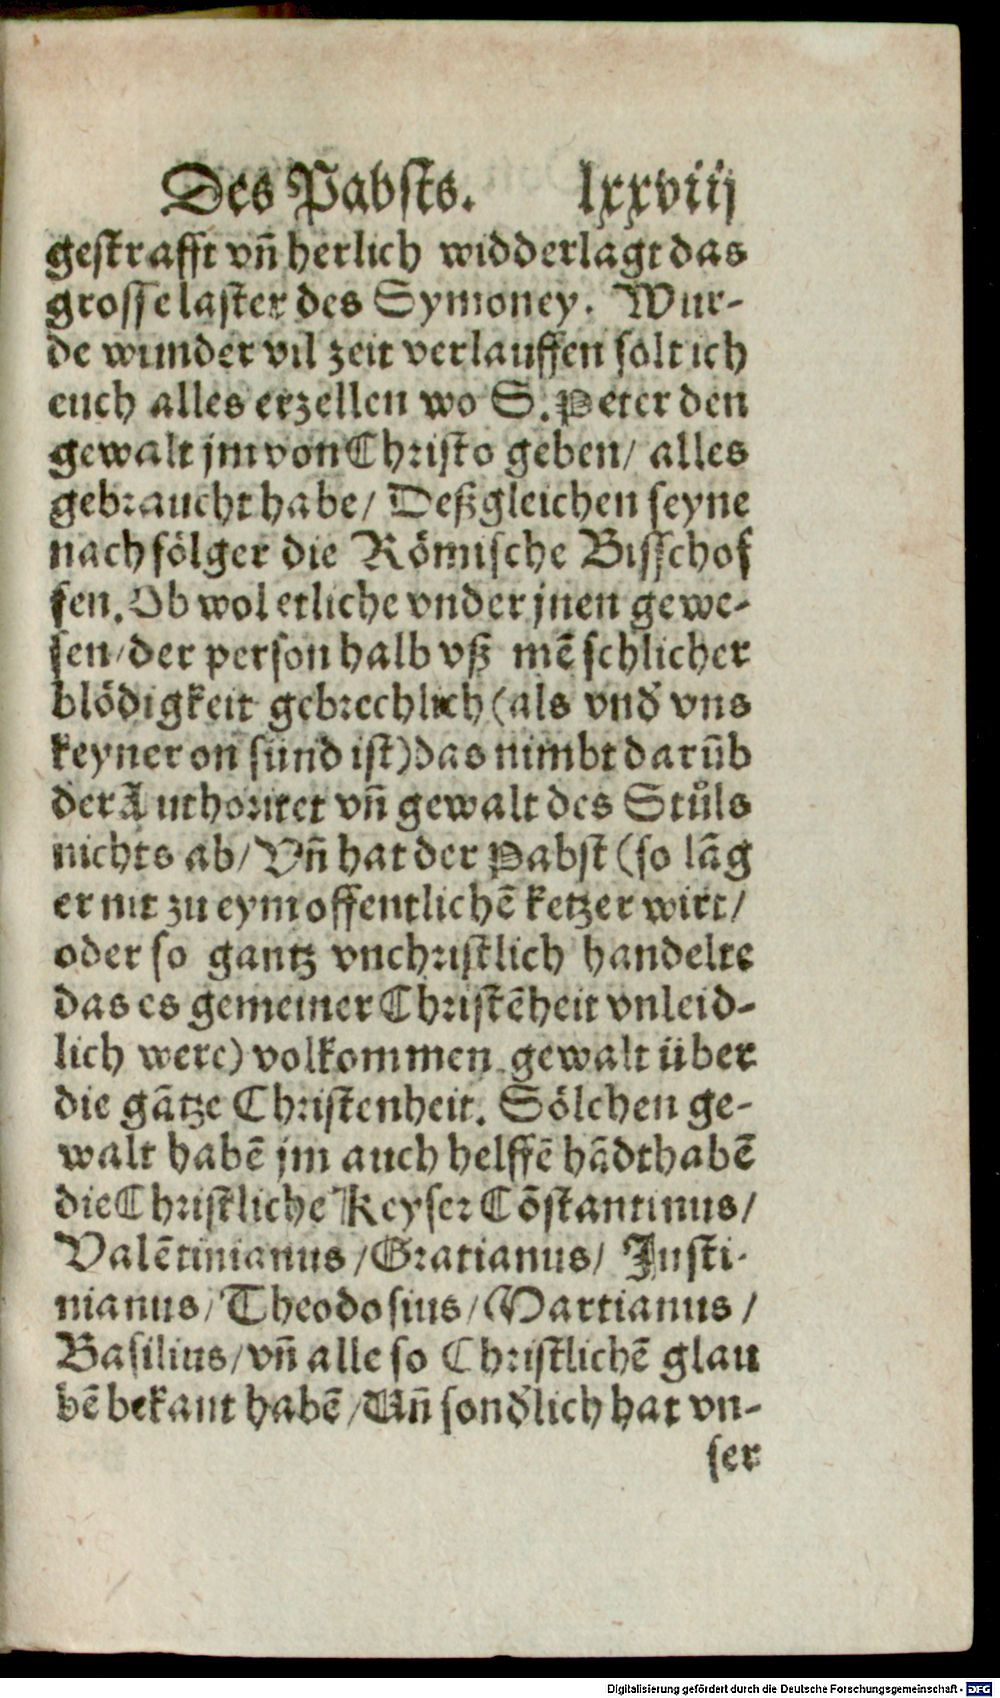 Des Pabsts. lxxviij
gestrafft vñ herlich widderlagt das
grosse laster des Symoney. Wur-
de wunder vil zeit verlauffen solt ich
euch alles erzellen wo S. Peter den
gewalt jm von Christo geben/ alles
gebraucht habe/ Deßgleichen seyne
nachfölger die Römische Bisschof
fen. Ob wol etliche vnder jnen gewe-
sen/ der person halb vß mẽschlicher
blödigkeit gebrechlich (als vnd̃ vns
keyner on sünd ist) das nimbt darũb
der Authoritet vñ gewalt des Stůls
nichts ab/ Vñ hat der Pabst (so lãg
er nit zu eym offentlichẽ ketzer wirt/
oder so gantz vnchristlich handelte
das es gemeiner Christẽheit vnleid-
lich were) volkommen gewalt über
die gãtze Christenheit. Sölchen ge-
walt habẽ jm auch helffẽ hãdthabẽ
die Christliche Keyser Cõstantinus/
Valẽtinianus/ Gratianus/ Justi-
nianus/ Theodosius/ Martianus/
Basilius/ vñ alle so Christlichẽ glau
bẽ bekant habẽ/ Vñ sond̃lich hat vn-
ser
Digitalisierung gefördert durch die Deutsche Forschungsgemeinschaft - DFG